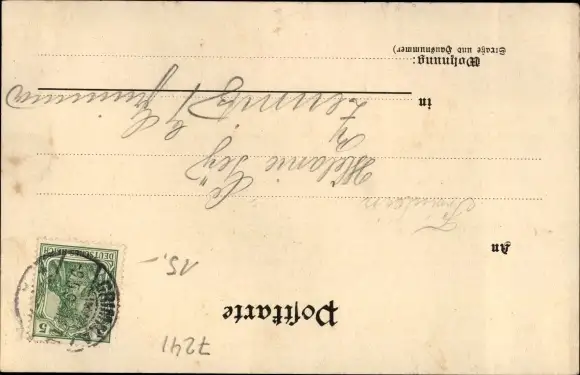 7241
Postkarte
5
DEUTSCHES REICH
GRIMMA
15,-
An
Fräulein
Melanie
in
Grimma
Wohnung:
(Straße und Hausnummer)